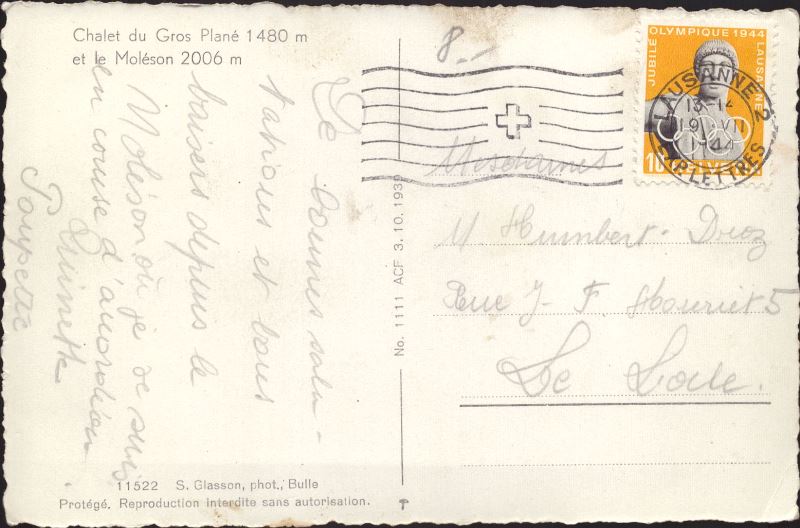 Chalet du Gros Plané 1480 m
et le Moléson 2006 m
De bonnes salu-
tations et bons
baisers depuis le
Moléson où je se suis
en course d'
Poupette
8.-
JUBILÉ OLYMPIQUE 1944 LAUSANNE
10 HELVETIA
LAUSANNE 2
13-14
19 VII
1944
EXP. LETTRES
Mesdames
M. Humbert-Droz
Rue J-F. Houriet 5
Le Locle.
No. 1111 ACF 3.10.1939
11522 S. Glasson, phot., Bulle
Protégé. Reproduction interdite sans autorisation.